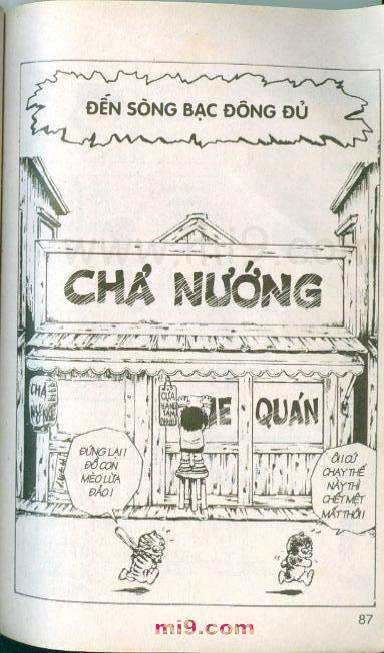 ĐẾN SÒNG BẠC ĐÔNG ĐỦ
CHẢ NƯỚNG
CHẢ
CỬA
HÀNG
QUÁN
ĐỨNG LẠI!
ĐỒ CON
MÈO LỪA
ĐẢO!
ÔI! CỨ
CHẠY THẾ
NÀY THÌ
CHẾT MỆT
MẤT THÔI!
87
mi9.com